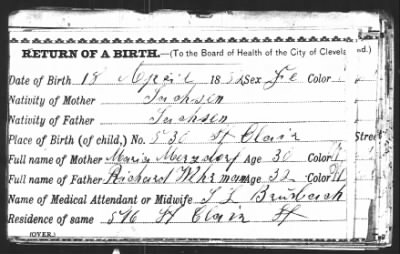 RETURN OF A BIRTH.—(To the Board of Health of the City of Clevela nd.)
Date of Birth 18 April 18 Sex Fe Color
Nativity of Mother Sachsen
Nativity of Father Sachsen
Place of Birth (of child,) No. 530 St Clair Street
Full name of Mother Maria Merzdorf Age 30 Color W
Full name of Father Richard Wehrmann Age 32 Color W
Name of Medical Attendant or Midwife
Residence of same 576 St Clair St
(OVER.)